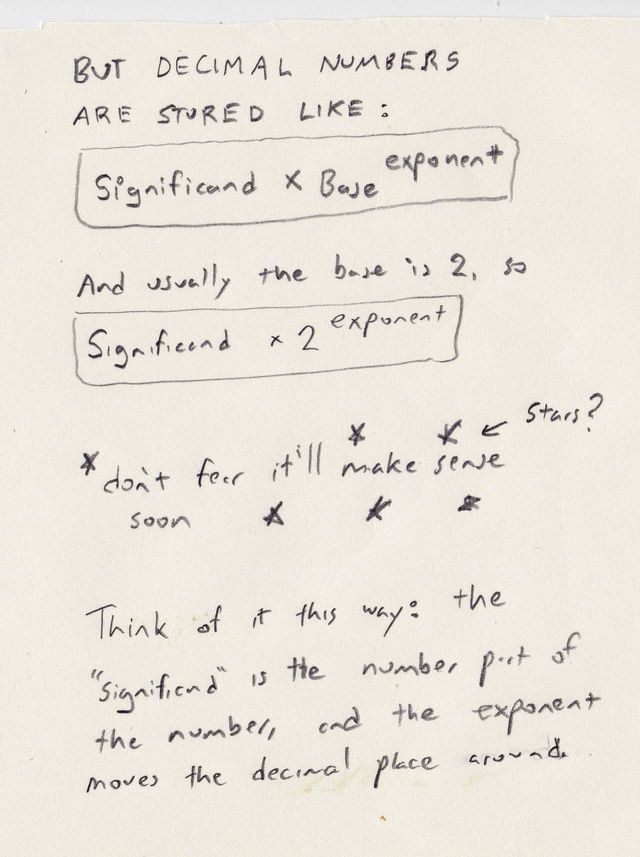 BUT DECIMAL NUMBERS
ARE STORED LIKE:
Significand × Base exponent
And usually the base is 2, so
Significand × 2 exponent
stars?
*don't fear it'll make sense
soon
Think of it this way: the
"significand" is the number part of
the number, and the exponent
moves the decimal place around.